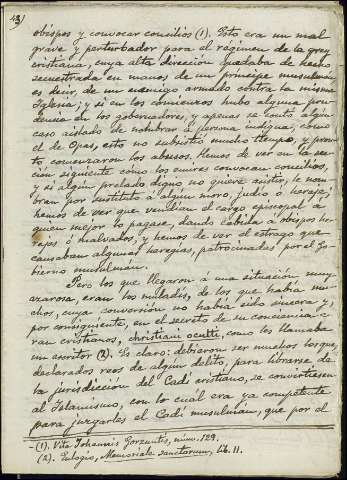 obispos y convocar concilios (1). Esto era un mal
grave y perturbador para el régimen de la grey
cristiana, cuya alta dirección quedaba de hecho
secuestrada en manos de un príncipe musulmán,
es decir, de un enemigo armado contra la misma
Iglesia; y si en los comienzos hubo alguna pru-
dencia en los gobernadores, y apenas se contó algun
caso aislado de nombrar á persona indigna, como
el de Opas, esto no subsistió mucho tiempo, y pronto
comenzaron los abusos. Hemos de ver en la sec-
ción siguiente cómo los emires convocan concilios,
y si algún prelado digno no quiere asistir, le nom-
bran por sustituto á algun moro, judío ó hereje;
hemos de ver que vendían el cargo episcopal á
quien mejor lo pagase, dando cabida á obispos he-
rejes ó malvados, y hemos de ver el estrago que
causaban algunas heregías, patrocinadas por el Go-
bierno musulman.
Pero los que llegaron á una situación muy
azarosa, eran los muladís, de los que había mu-
chos, cuya conversión no había sido sincera y,
por consiguiente, en el secreto de su conciencia e-
ran cristianos, christiani oculti, como los llamaba
un escritor (2). Es claro: debieron ser muchos los que,
declarados reos de algún delito, para librarse de
la jurisdicción del Cadí cristiano, se convirtiesen
al Islamismo, con lo cual era ya competente
para juzgarles el Cadí musulmán, que por el
(1). Vita Johannis Gorzientis, núm. 129.
(2). Eulogio, Memoriale sanctorum, lib. II.